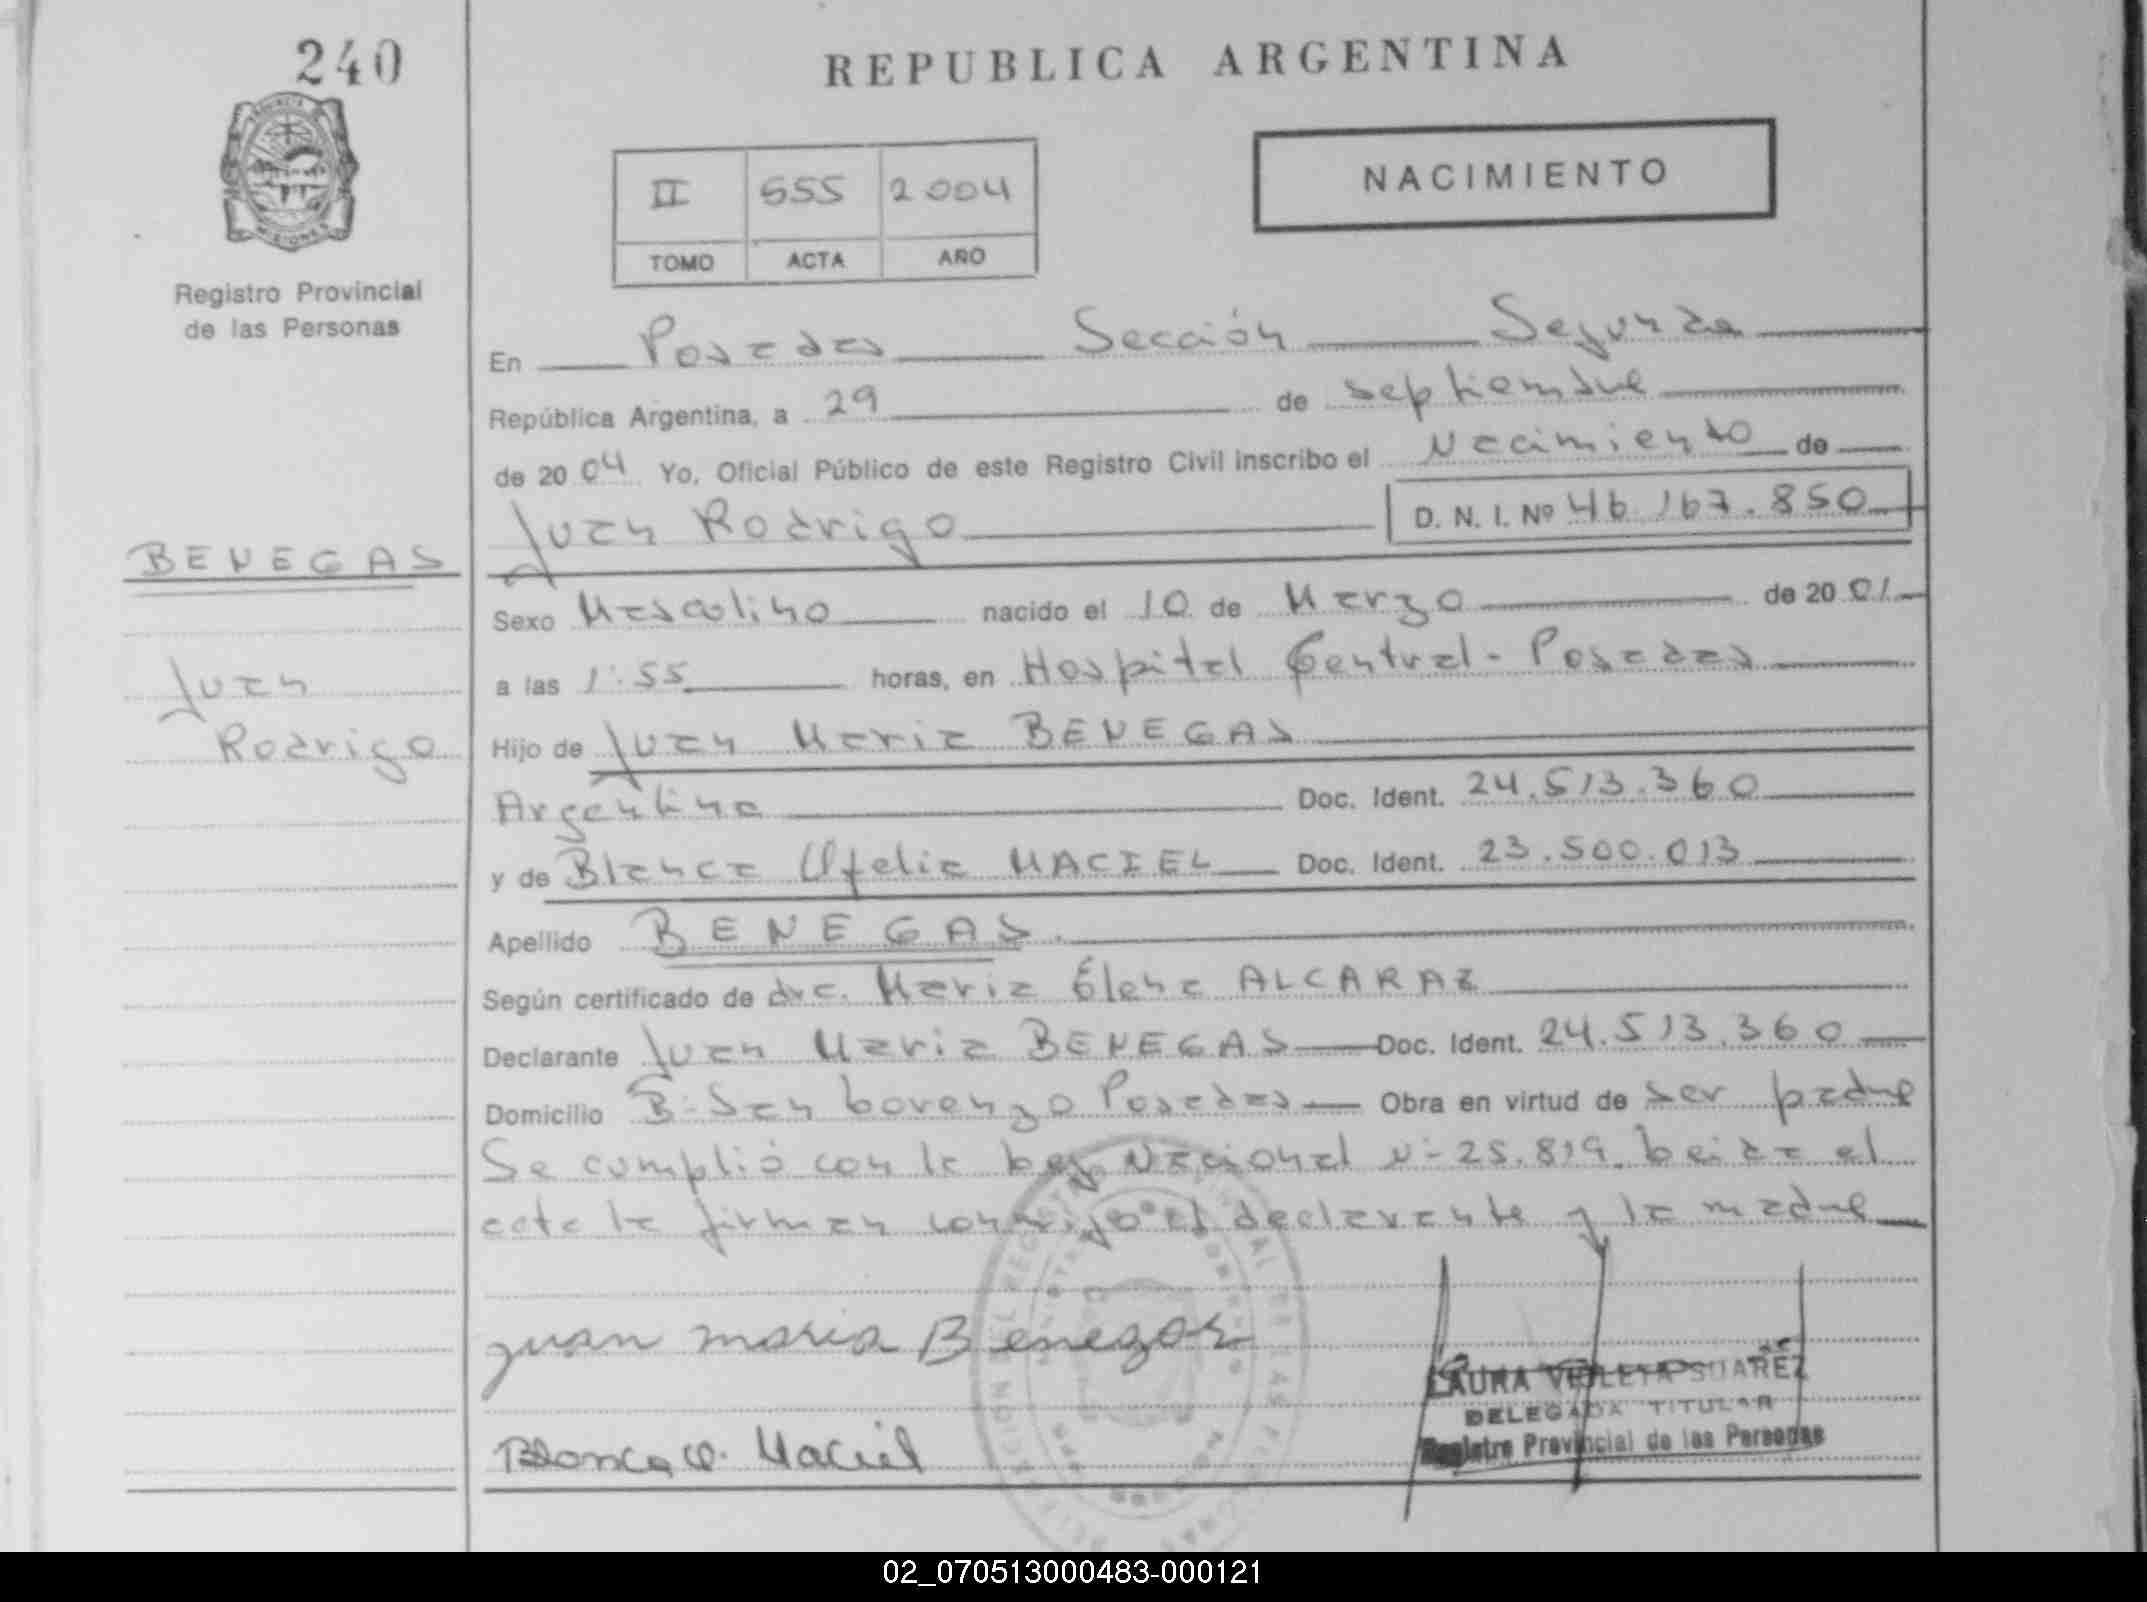 240
REPUBLICA ARGENTINA
PROVINCIA
MISIONES
Registro Provincial
de las Personas
II 555 2004
TOMO ACTA AÑO
NACIMIENTO
En Posadas Sección Segunda
República Argentina, a 29 de septiembre
de 20 04 Yo, Oficial Público de este Registro Civil inscribo el Nacimiento de
Juan Rodrigo D. N. I. Nº 46.167.850
BENEGAS
Juan
Rodrigo
Sexo Masculino nacido el 10 de Marzo de 20 01
a las 1:55 horas, en Hospital Central - Posadas
Hijo de Juan Maria BENEGAS
Argentina Doc. Ident. 24.513.360
y de Blanca Ofelia MACIEL Doc. Ident. 23.500.013
Apellido BENEGAS.
Según certificado de dra. Maria Elena ALCARAZ
Declarante Juan Maria BENEGAS Doc. Ident. 24.513.360
Domicilio B- San Lorenzo Posadas Obra en virtud de ser padre
Se cumplió con la Ley Nacional N- 25.819. Leida el
acta la firman conmigo el declarante y la madre
juan maria Benegas
Blanca O. Maciel
LAURA VIOLETA SUAREZ
DELEGADA TITULAR
Registro Provincial de las Personas
02_070513000483-000121